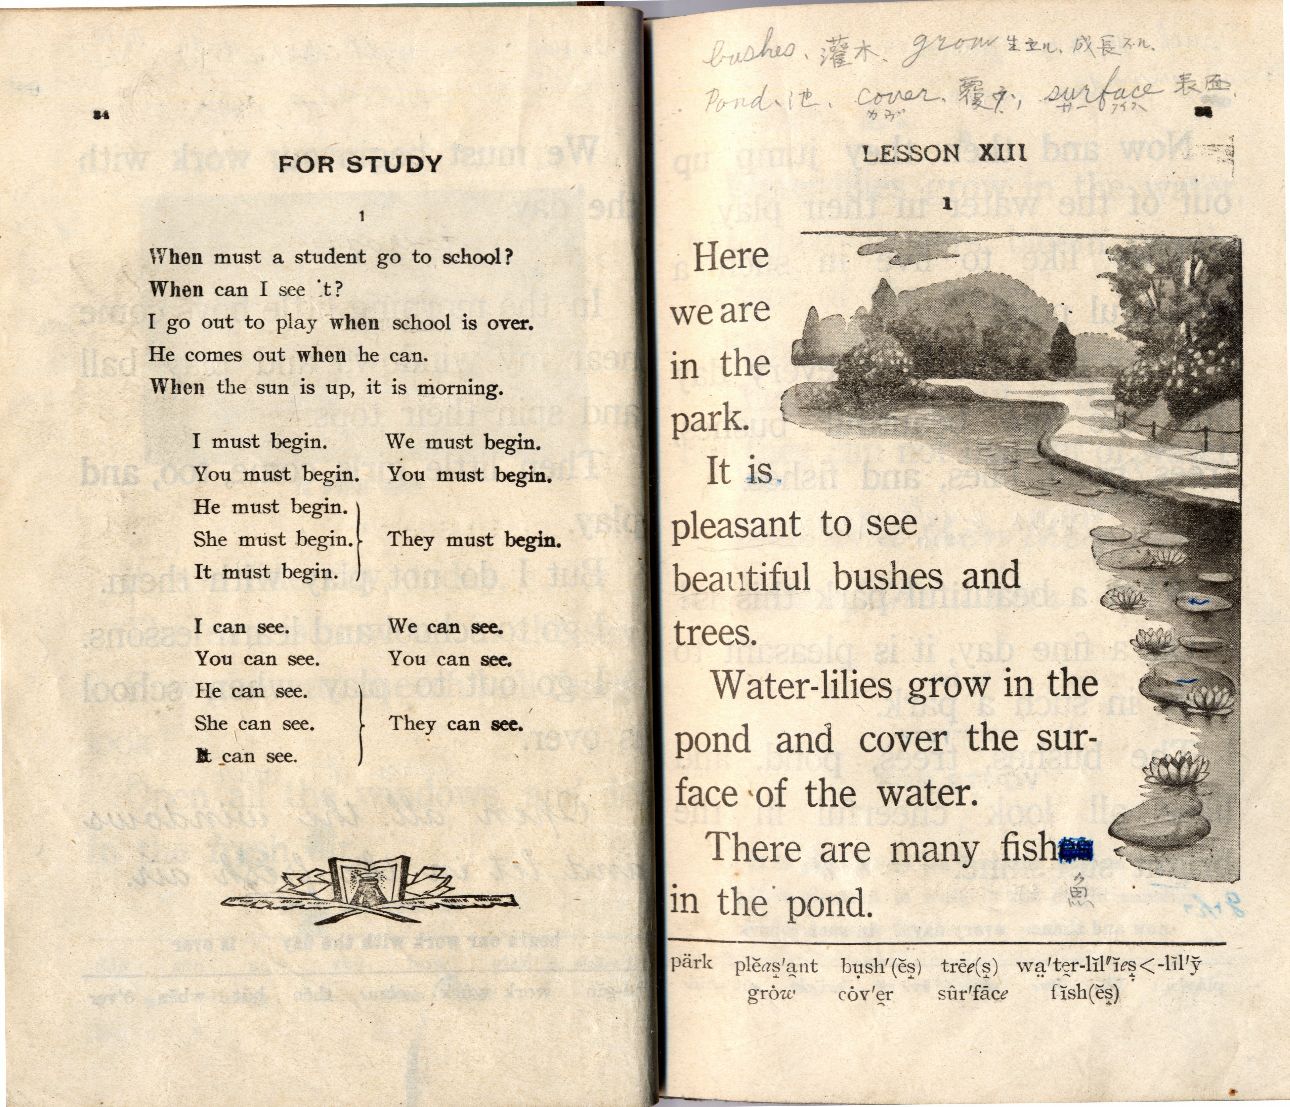 34
FOR STUDY
1
When must a student go to school?
When can I see 't?
I go out to play when school is over.
He comes out when he can.
When the sun is up, it is morning.
I must begin. We must begin.
You must begin. You must begin.
He must begin.
She must begin. They must begin.
It must begin.
I can see. We can see.
You can see. You can see.
He can see.
She can see. They can see.
It can see.
bushes、灌木、grow 生立ル、成長スル.
Pond、池、cover、覆フ, surface 表面.
カヴ
LESSON XIII
1
Here
we are
in the
park.
It is
pleasant to see
beautiful bushes and
trees.
Water-lilies grow in the
pond and cover the sur-
face of the water.
There are many fish
魚
in the pond.
pärk plĕas̝'a̤nt bụsh'(ĕs̝) trēe(s̝) wa̤'tẽr-lĭl'ĭes̝<-lĭl'y̆
grōw cȯv'ẽr sûr'fāce fĭsh(ĕs̝)